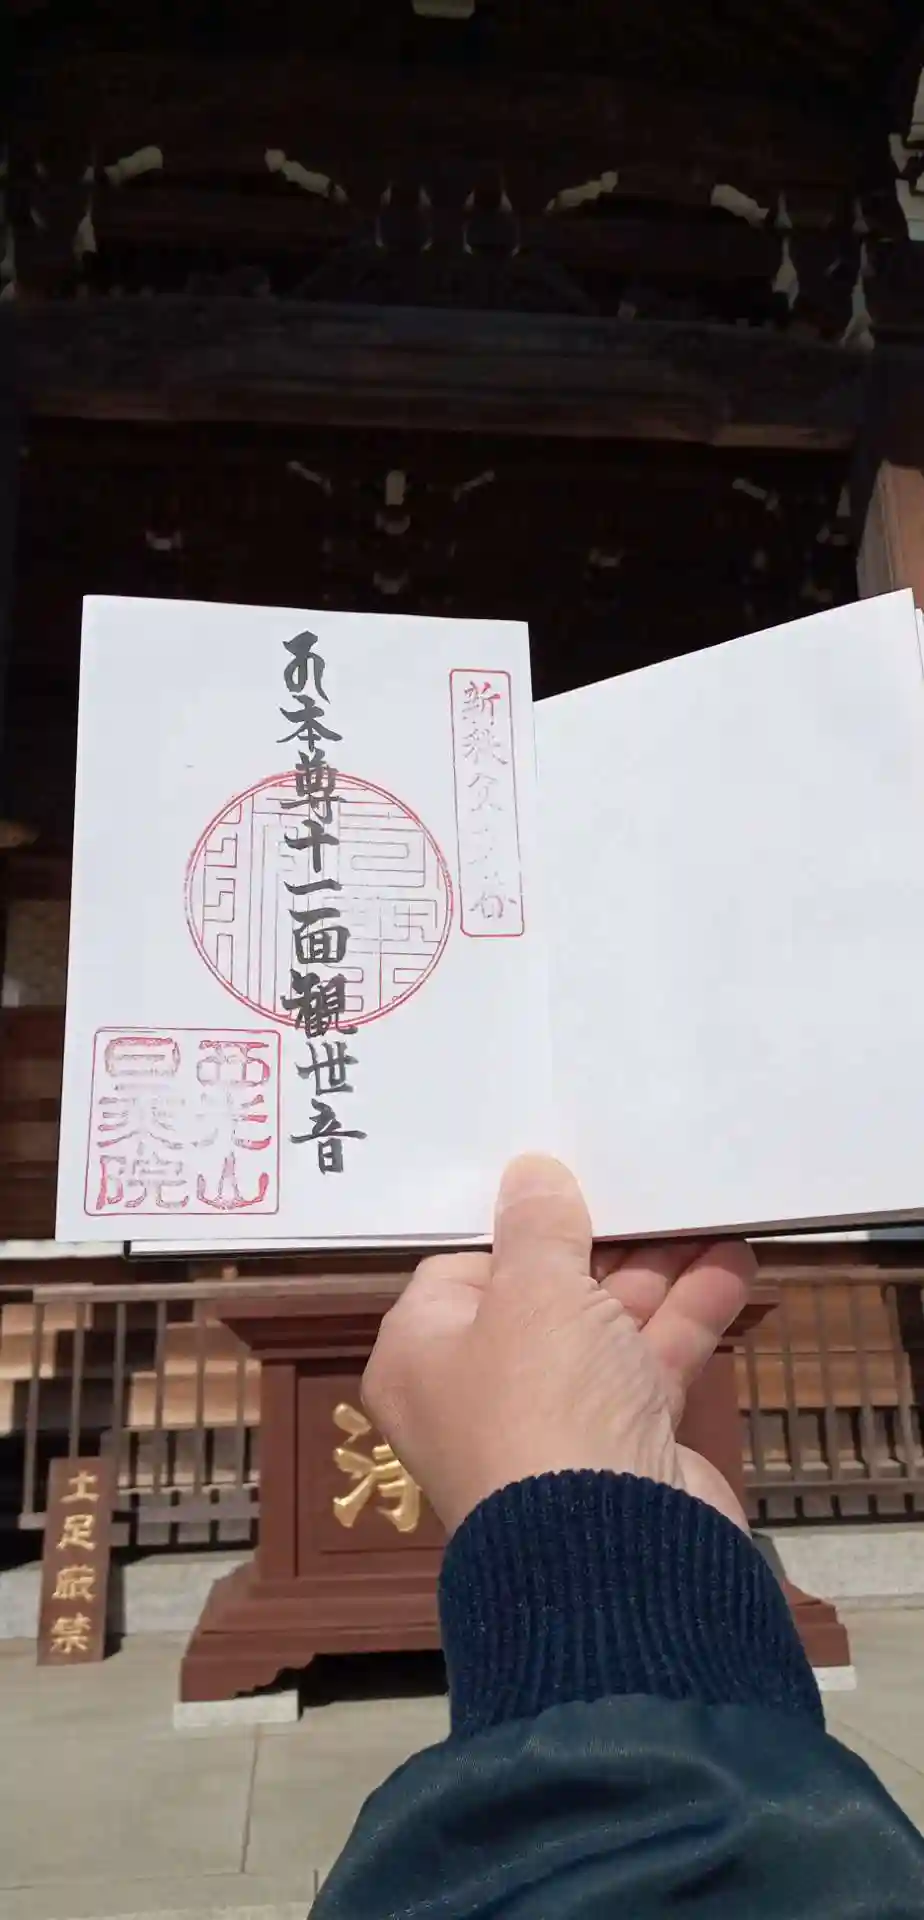 新秩父
番
御本尊十一面観世音
西光山
日乗院
浄
土足厳禁